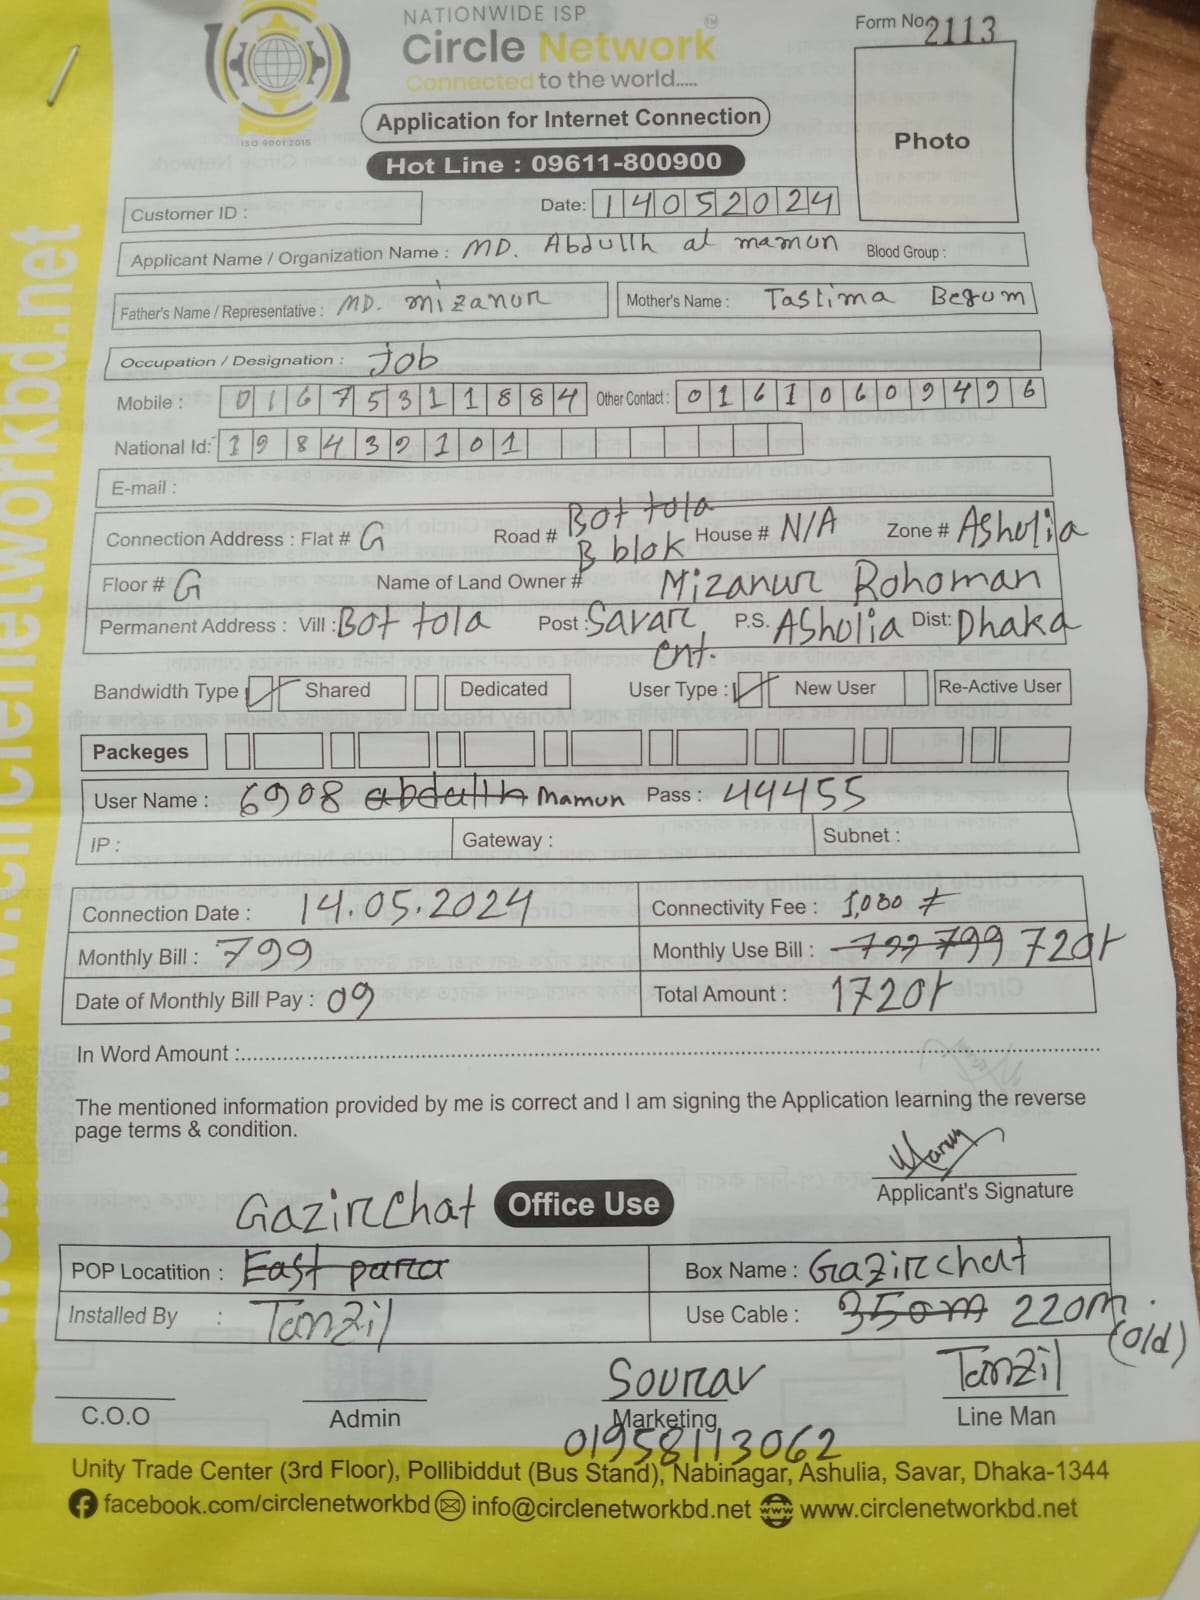 NATIONWIDE ISP
Circle Network
TM
Connected to the world.....
ISO 9001:2015
Form No. 2113
Photo
Application for Internet Connection
Hot Line : 09611-800900
Customer ID :
Date: 14052024
Applicant Name / Organization Name : MD. Abdullh al mamun Blood Group :
Father's Name / Representative : MD. mizanur Mother's Name : Taslima Begum
Occupation / Designation : Job
Mobile : 01675311884 Other Contact : 01610609496
National Id: 1984392101
E-mail :
Connection Address : Flat # G Road # Bot tola B blok House # N/A Zone # Ashulia
Floor # G Name of Land Owner # Mizanur Rohoman
Permanent Address : Vill : Bot tola Post : Savar Cnt. P.S. Ashulia Dist: Dhaka
Bandwidth Type Shared Dedicated User Type : New User Re-Active User
Packeges
User Name : 6908 abdullh Mamun Pass : 44455
IP : Gateway : Subnet :
Connection Date : 14.05.2024 Connectivity Fee : 1,000
Monthly Bill : 799 Monthly Use Bill : 799 799 720
Date of Monthly Bill Pay : 09 Total Amount : 1720
In Word Amount :
The mentioned information provided by me is correct and I am signing the Application learning the reverse
page terms & condition.
Mamun
Applicant's Signature
Gazirchat Office Use
POP Locatition : East para Box Name : Gazirchat
Installed By : Tanzil Use Cable : 350m 220m. (old)
Sourav Tanzil
C.O.O Admin Marketing Line Man
01958113062
Unity Trade Center (3rd Floor), Pollibiddut (Bus Stand), Nabinagar, Ashulia, Savar, Dhaka-1344
facebook.com/circlenetworkbd info@circlenetworkbd.net www.circlenetworkbd.net
www.circlenetworkbd.net